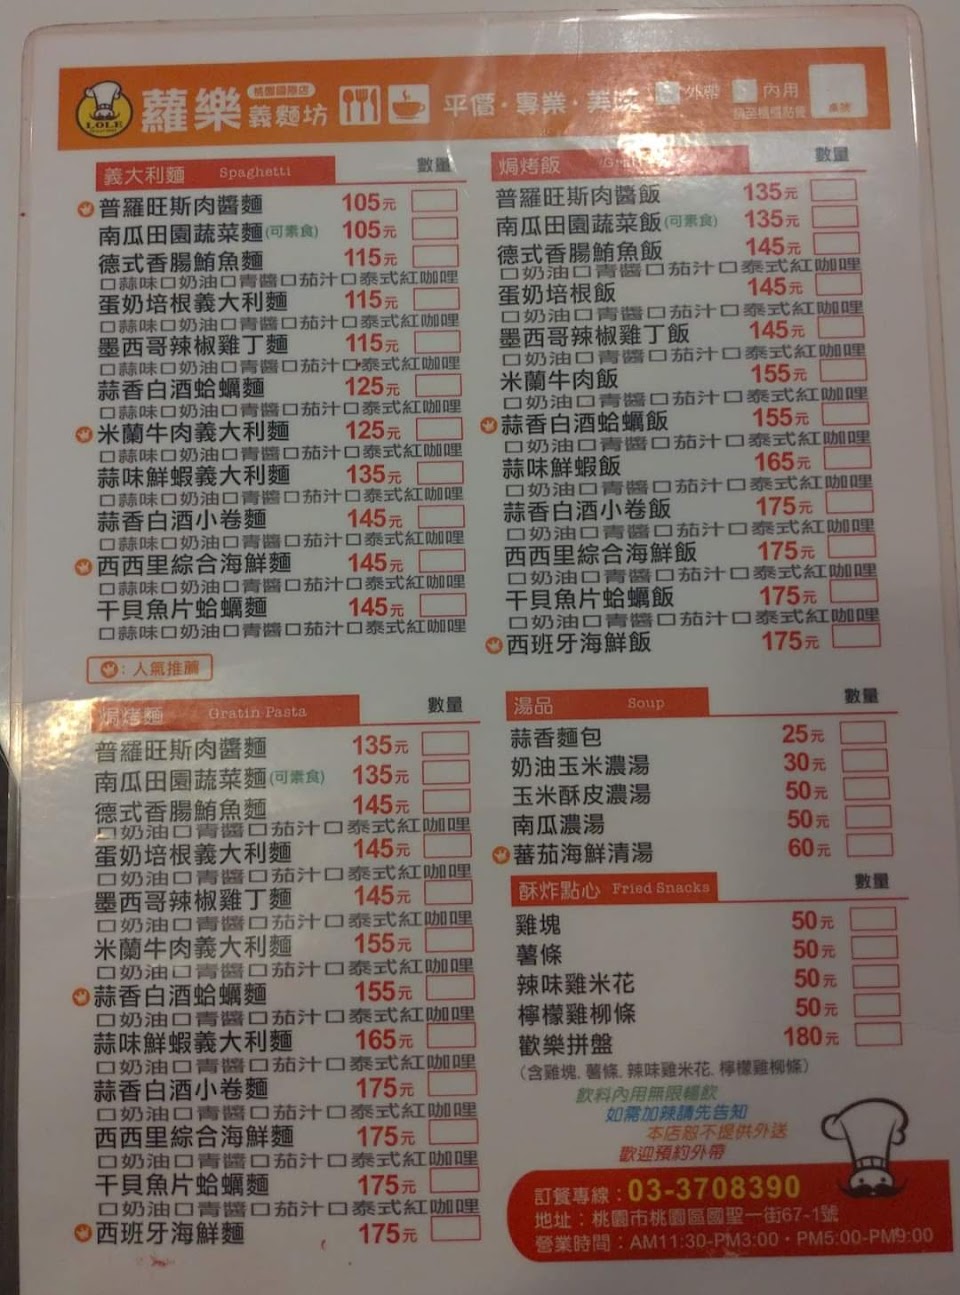 LOLE
蘿樂
桃園國際店
義麵坊
平價·專業·美味
外帶
內用
桌號
義大利麵 Spaghetti 數量
普羅旺斯肉醬麵 105元
南瓜田園蔬菜麵(可素食) 105元
德式香腸鮪魚麵 115元
□蒜味□奶油□青醬□茄汁□泰式紅咖哩
蛋奶培根義大利麵 115元
□蒜味□奶油□青醬□茄汁□泰式紅咖哩
墨西哥辣椒雞丁麵 115元
□蒜味□奶油□青醬□茄汁□泰式紅咖哩
蒜香白酒蛤蠣麵 125元
□蒜味□奶油□青醬□茄汁□泰式紅咖哩
米蘭牛肉義大利麵 125元
□蒜味□奶油□青醬□茄汁□泰式紅咖哩
蒜味鮮蝦義大利麵 135元
□蒜味□奶油□青醬□茄汁□泰式紅咖哩
蒜香白酒小卷麵 145元
□蒜味□奶油□青醬□茄汁□泰式紅咖哩
西西里綜合海鮮麵 145元
□蒜味□奶油□青醬□茄汁□泰式紅咖哩
干貝魚片蛤蠣麵 145元
□蒜味□奶油□青醬□茄汁□泰式紅咖哩
：人氣推薦
焗烤麵 Gratin Pasta 數量
普羅旺斯肉醬麵 135元
南瓜田園蔬菜麵(可素食) 135元
德式香腸鮪魚麵 145元
□奶油□青醬□茄汁□泰式紅咖哩
蛋奶培根義大利麵 145元
□奶油□青醬□茄汁□泰式紅咖哩
墨西哥辣椒雞丁麵 145元
□奶油□青醬□茄汁□泰式紅咖哩
米蘭牛肉義大利麵 155元
□奶油□青醬□茄汁□泰式紅咖哩
蒜香白酒蛤蠣麵 155元
□奶油□青醬□茄汁□泰式紅咖哩
蒜味鮮蝦義大利麵 165元
□奶油□青醬□茄汁□泰式紅咖哩
蒜香白酒小卷麵 175元
□奶油□青醬□茄汁□泰式紅咖哩
西西里綜合海鮮麵 175元
□奶油□青醬□茄汁□泰式紅咖哩
干貝魚片蛤蠣麵 175元
□奶油□青醬□茄汁□泰式紅咖哩
西班牙海鮮麵 175元
焗烤飯 數量
普羅旺斯肉醬飯 135元
南瓜田園蔬菜飯(可素食) 135元
德式香腸鮪魚飯 145元
□奶油□青醬□茄汁□泰式紅咖哩
蛋奶培根飯 145元
□奶油□青醬□茄汁□泰式紅咖哩
墨西哥辣椒雞丁飯 145元
□奶油□青醬□茄汁□泰式紅咖哩
米蘭牛肉飯 155元
□奶油□青醬□茄汁□泰式紅咖哩
蒜香白酒蛤蠣飯 155元
□奶油□青醬□茄汁□泰式紅咖哩
蒜味鮮蝦飯 165元
□奶油□青醬□茄汁□泰式紅咖哩
蒜香白酒小卷飯 175元
□奶油□青醬□茄汁□泰式紅咖哩
西西里綜合海鮮飯 175元
□奶油□青醬□茄汁□泰式紅咖哩
干貝魚片蛤蠣飯 175元
□奶油□青醬□茄汁□泰式紅咖哩
西班牙海鮮飯 175元
湯品 Soup 數量
蒜香麵包 25元
奶油玉米濃湯 30元
玉米酥皮濃湯 50元
南瓜濃湯 50元
蕃茄海鮮清湯 60元
酥炸點心 Fried Snacks 數量
雞塊 50元
薯條 50元
辣味雞米花 50元
檸檬雞柳條 50元
歡樂拼盤 180元
(含雞塊, 薯條, 辣味雞米花, 檸檬雞柳條)
飲料內用無限暢飲
如需加辣請先告知
本店恕不提供外送
歡迎預約外帶
訂餐專線：03-3708390
地址：桃園市桃園區國聖一街67-1號
營業時間：AM11:30-PM3:00·PM5:00-PM9:00